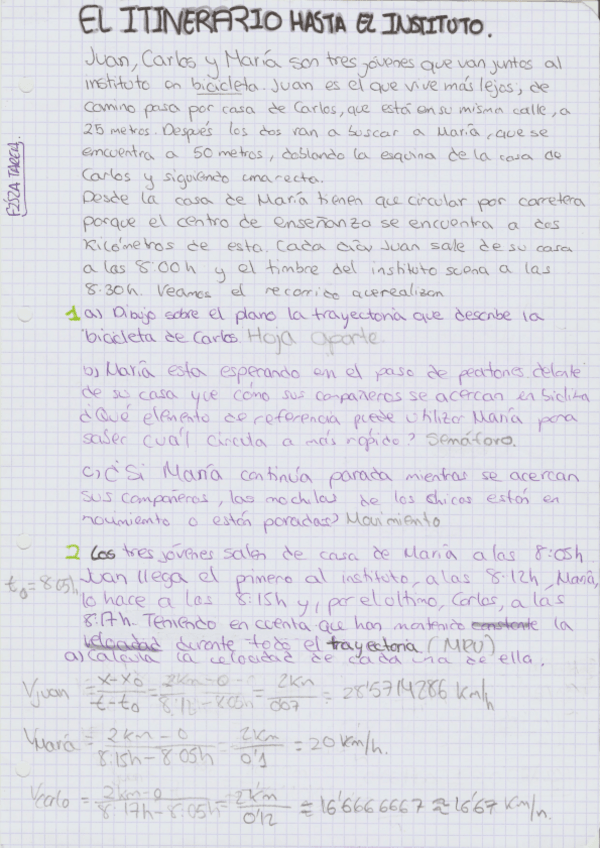 EL ITINERARIO HASTA EL INSTITUTO.
Juan, Carlos y María son tres jóvenes que van juntos al
instituto en bicicleta. Juan es el que vive más lejos, de
camino pasa por casa de Carlos, que está en su misma calle, a
25 metros. Después los dos van a buscar a María, que se
encuentra a 50 metros, doblando la esquina de la casa de
Carlos y siguiendo una recta.
Desde la casa de María tienen que circular por carretera
porque el centro de enseñanza se encuentra a dos
kilómetros de esta. Cada día Juan sale de su casa
a las 8:00h y el timbre del instituto suena a las
8:30h. Veamos el recorrido
1 a) Dibuja sobre el plano la trayectoria que describe la
bicicleta de Carlos Hoja aparte
b) María esta esperando en el paso de peatones delante
de su casa y ve cómo sus compañeros se acercan en
¿Qué elemento de referencia puede utilizar María para
saber cuál circula a más rápido? Semáforo.
c) ¿Si María continúa parada mientras se acercan
sus compañeros, las mochilas de los chicos están en
movimiento o están paradas? Movimiento
2 Los tres jóvenes salen de casa de María a las 8:05h
t₀=8'05h
Juan llega el primero al instituto, a las 8:12h, María,
lo hace a las 8:15h y, por el oltimo, Carlos, a las
8:17h. Teniendo en cuenta que han mantenido constante la
velocidad durante todo el trayectoria (MRU)
a) Calcula la velocidad de cada una de ella.
Vjuan = x-x₀ / t-t₀ = 2km-0 / 8'12-8'05h = 2km / 0'07 = 28'5714286 km/h
Vmaría = 2km-0 / 8'15h-8'05h = 2km / 0'1 = 20 km/h.
Vcarlo = 2km-0 / 8'17h-8'05h = 2km / 0'12 ≈ 16'6666667 ≈ 16'67 km/h.